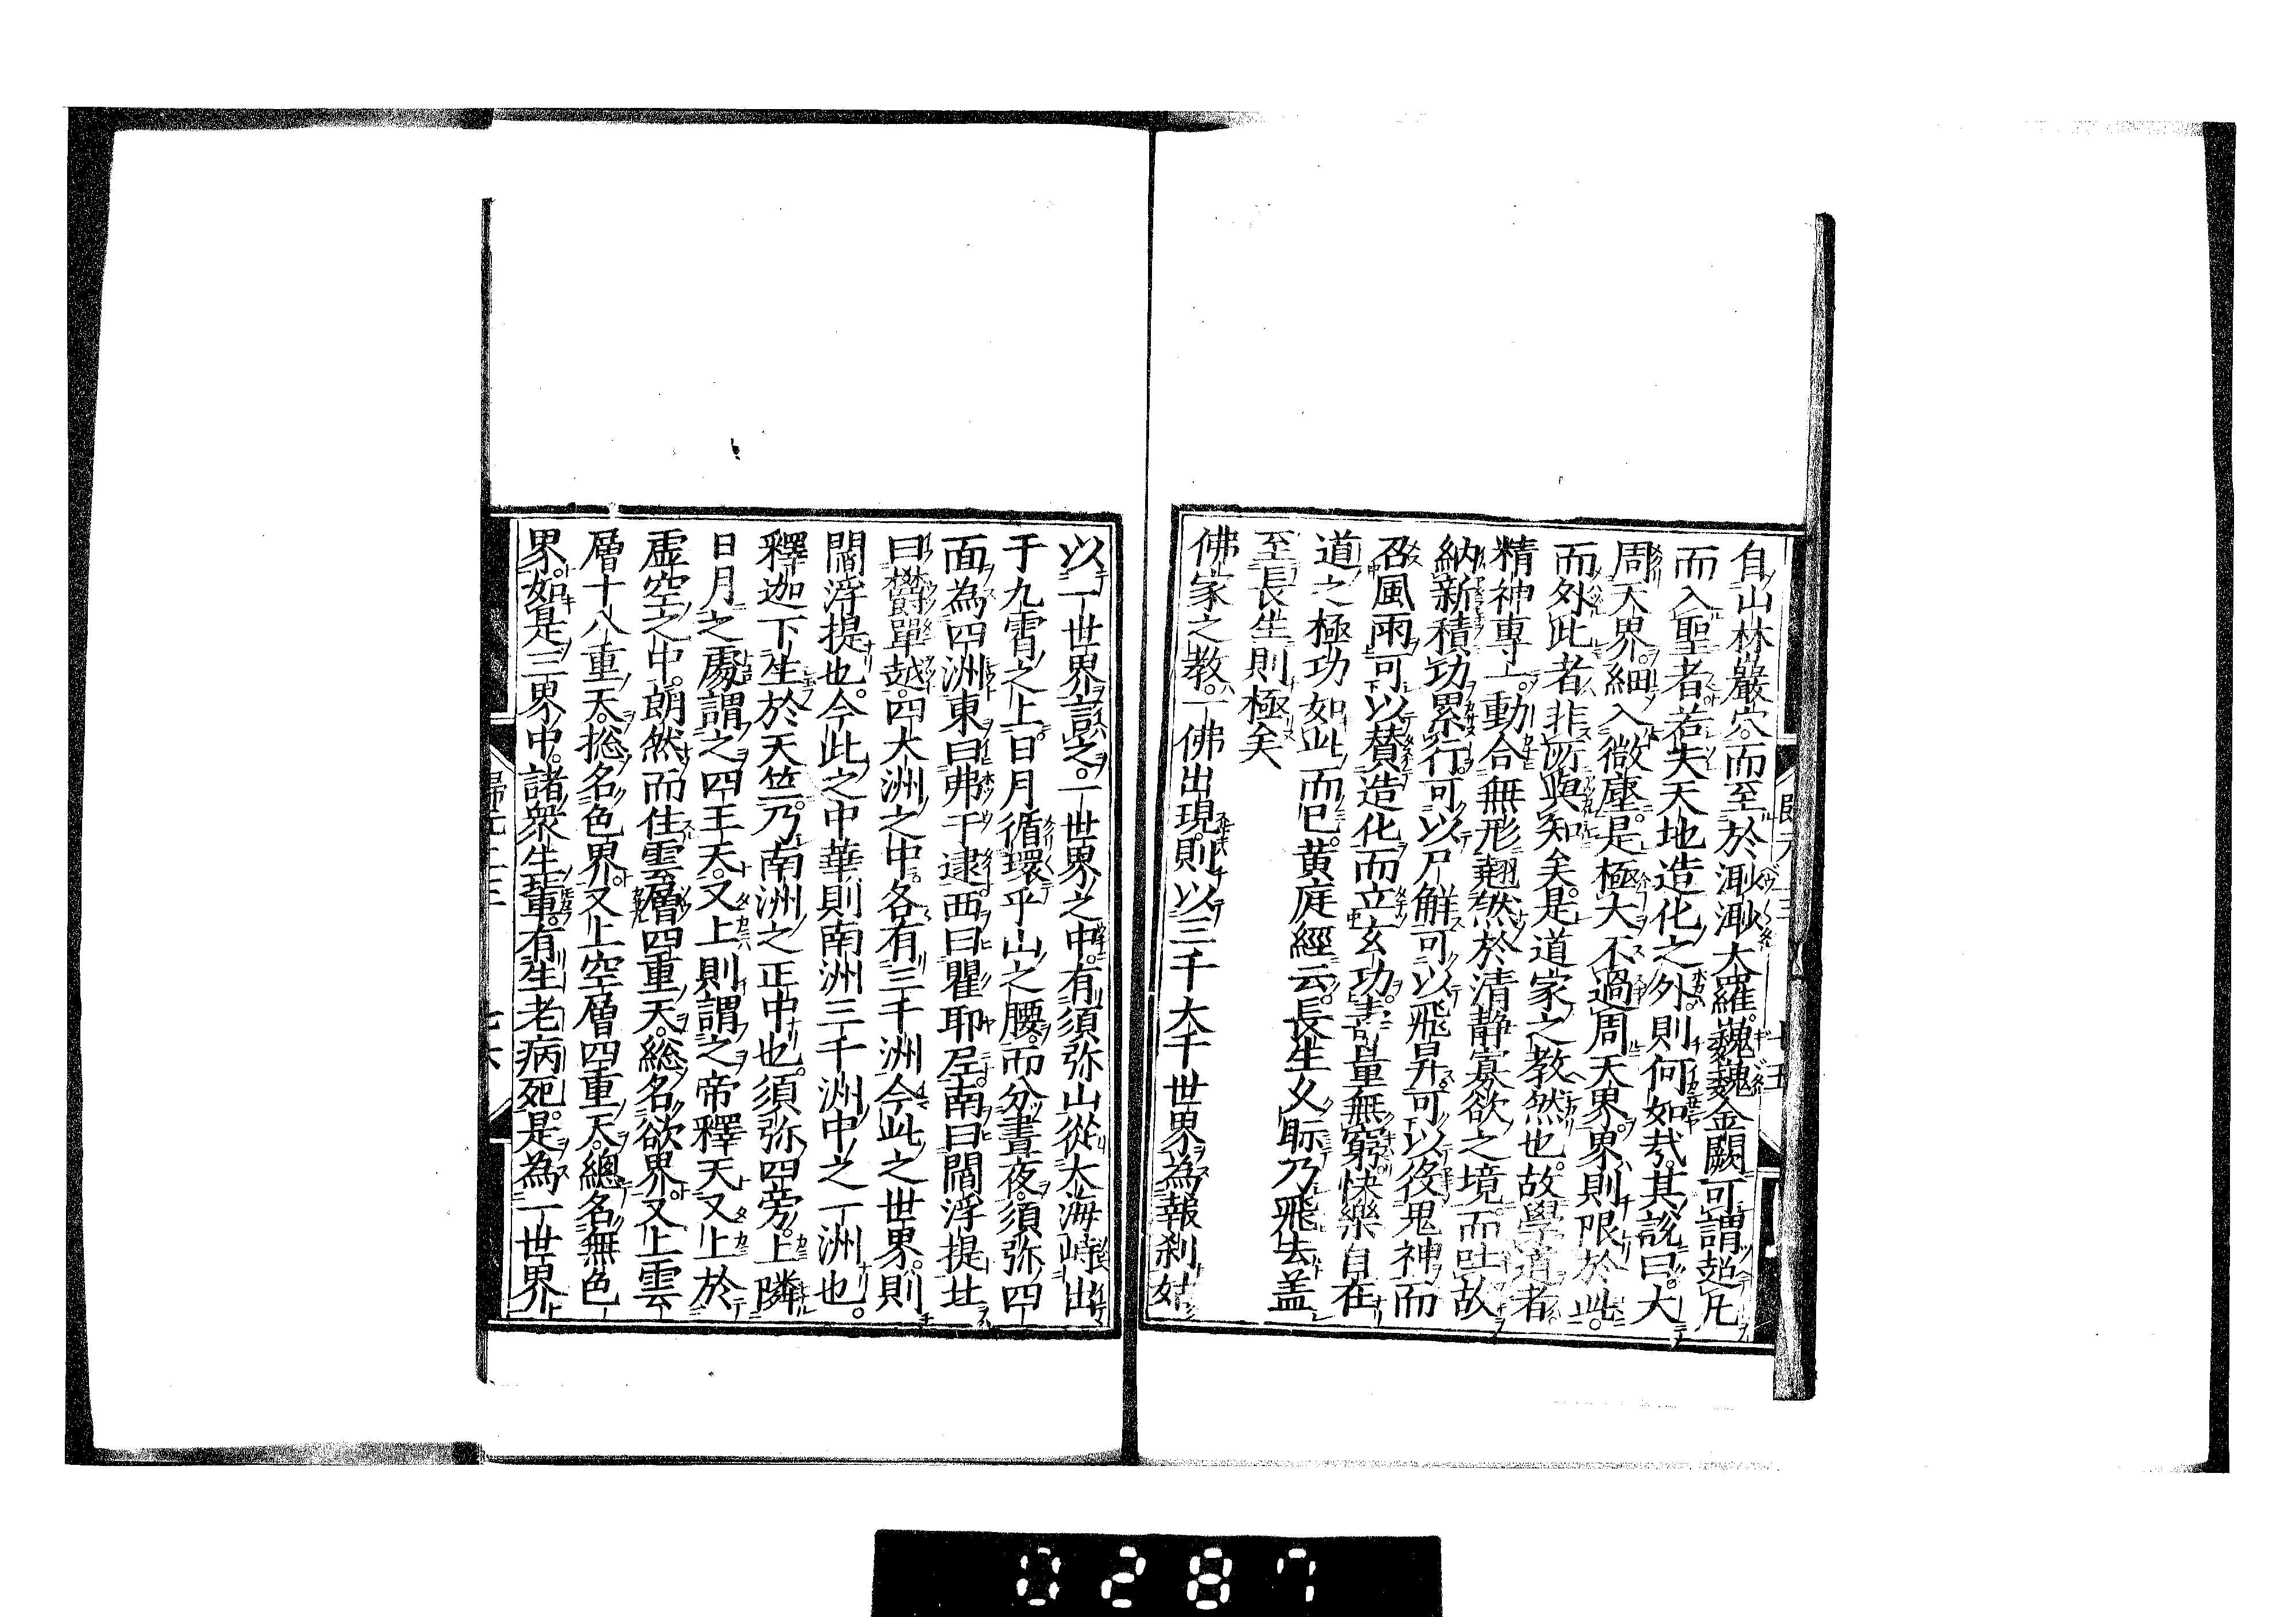 自山林巖穴而至於渺渺大羅巍巍金闕可謂超凡
而入聖者若夫天地造化之外則何如哉其說曰大
周天界細入微塵是極大不過周天界界則限於此
而外此者非所與知矣是道家之教然也故學道者
精神專一動合無形翹然於清静寡欲之境而吐故
納新積功累行可以尸解可以飛昇可以役鬼神而
召風雨可以賛造化而立玄功壽量無窮快樂自在
道之極功如此而已黄庭經云長生久眎乃飛去盖
至長生則極矣
佛家之教一佛出現則以三千大千世界為報刹姑
以一世界言之一世界之中有須弥山從大海峙出
于九霄之上日月循環乎山之腰而分晝夜須弥四
面為四洲東曰弗于逮西曰瞿耶尼南曰閻浮提北
曰欝單越四大洲之中各有三千洲今此之世界則
閻浮提也今此之中華則南洲三千洲中之一洲也
釋迦下生於天竺乃南洲之正中也須弥四旁上隣
日月之處謂之四王天又上則謂之帝釋天又上於
虚空之中朗然而住雲層四重天総名欲界又上雲
層十八重天揔名色界又上空層四重天總名無色
界如是三界中諸衆生輩有生老病死是為一世界
七六
0287